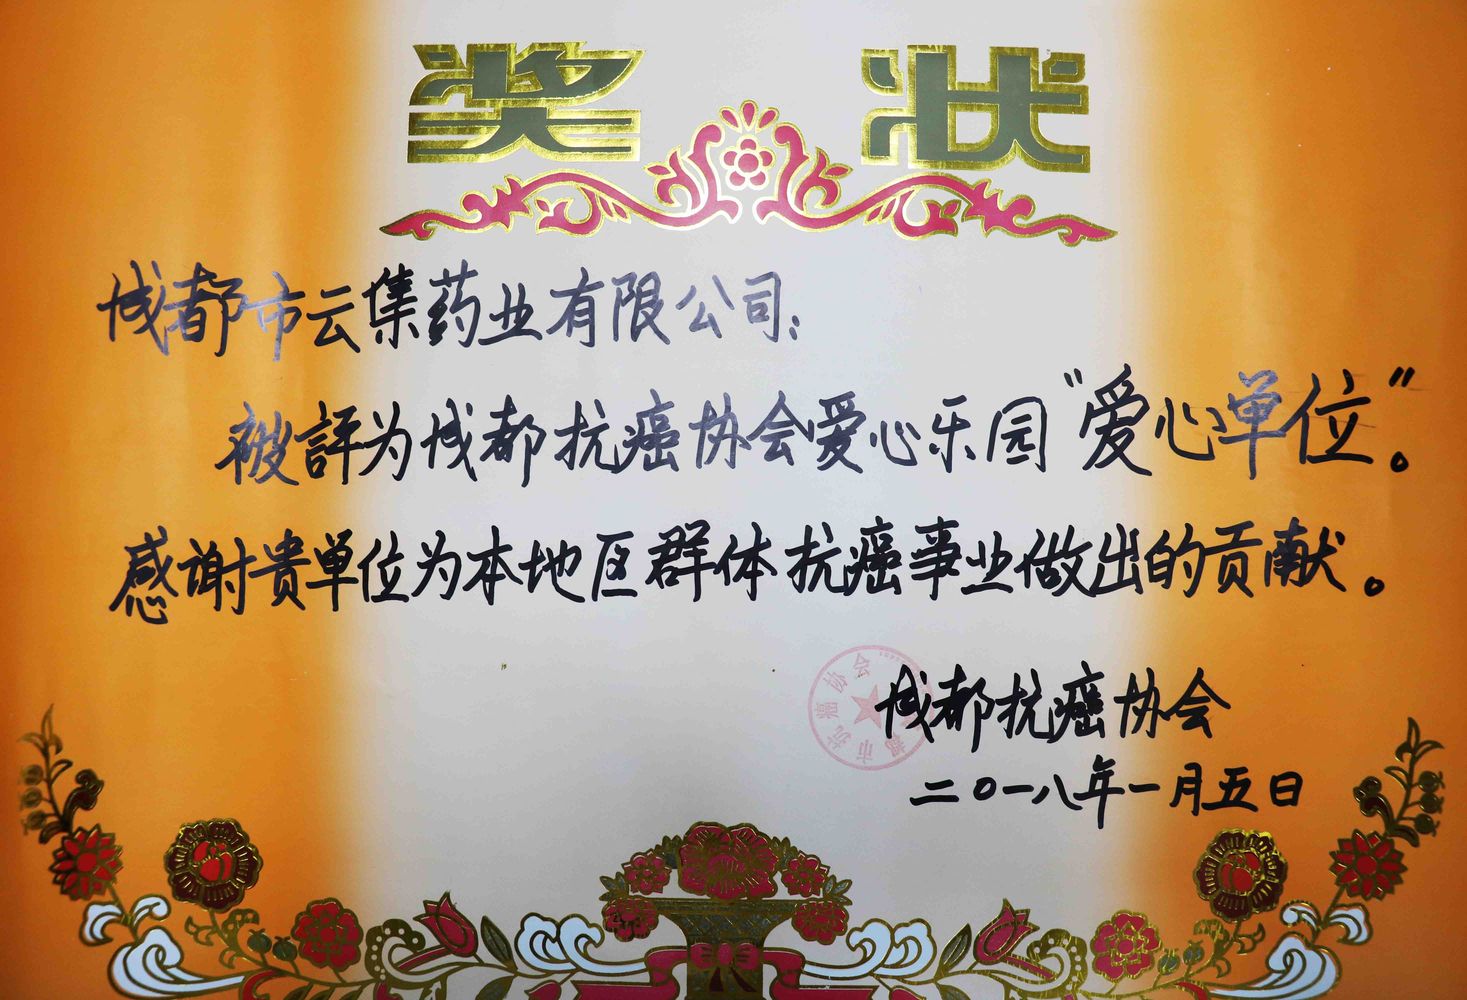 奖状
成都市云集药业有限公司：
被評为成都抗癌协会爱心乐园“爱心单位”。
感谢贵单位为本地区群体抗癌事业做出的贡献。
成都抗癌协会
二〇一八年一月五日
都市抗癌协会